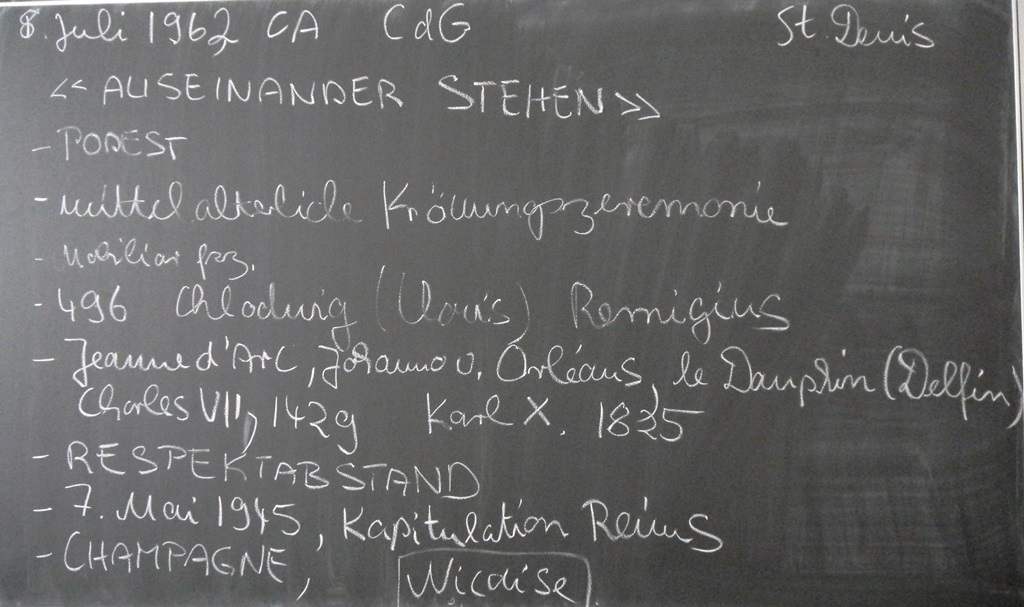 8. Juli 1962 CA CdG St. Denis
<< AUSEINANDER STEHEN >>
- PODEST
- mittelalterliche Krönungszeremonie
- Mobiliar frz.
- 496 Chlodwig (Clovis) Remigius
- Jeanne d'Arc, Johanna v. Orléans, le Dauphin (Delfin)
Charles VII, 1429 Karl X. 1825
- RESPEKTABSTAND
- 7. Mai 1945, Kapitulation Reims
- CHAMPAGNE,